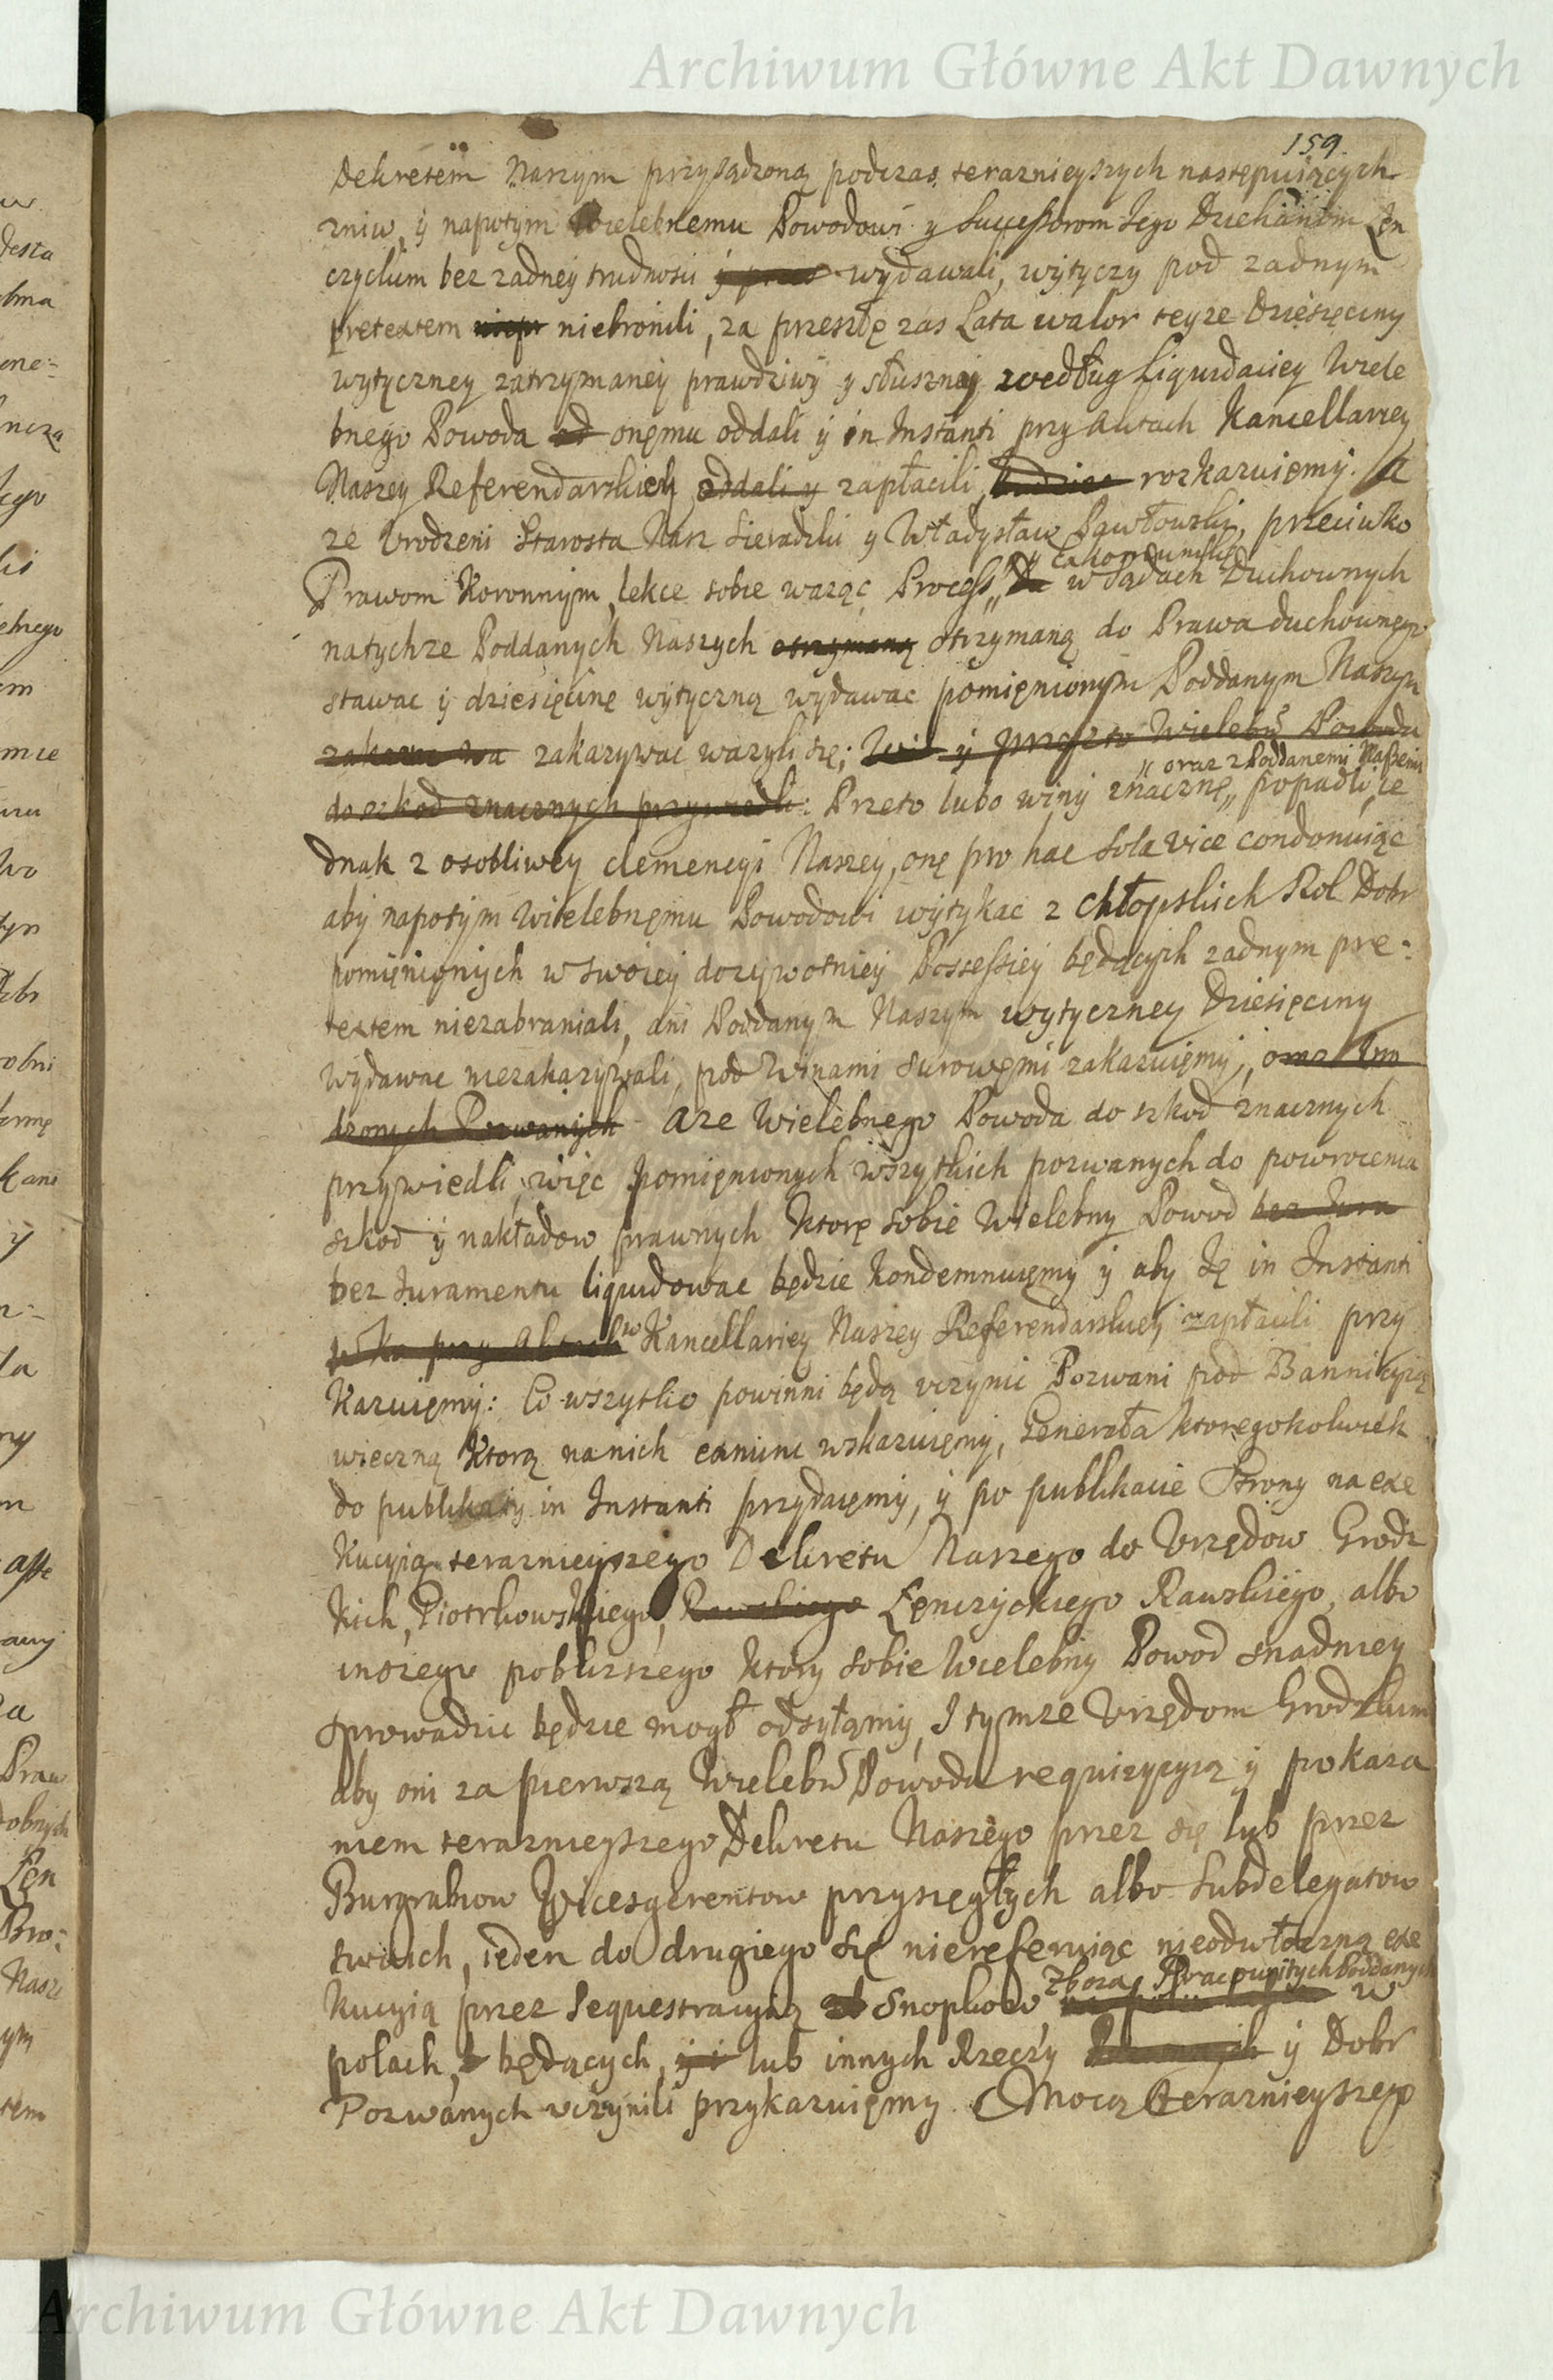 Archiwum Główne Akt Dawnych
159.
Dekretem Naszym przysądzoną podczas teraznieyszych następuiących
zniw, y napotym Wielebnemu Powodowi y Successorom Iego Dziekanom Łen
czyckim bez zadney trudnosci wydawali, wytyczy pod zadnym
pretextem niebronili, za przeszłę zas Lata walor teyze Dziesięciny
wytyczney zatrzymaney prawdziwy y słuszney według Liquidaciey Wiele
bnego Powoda od onęmu oddali y in Instanti przy Aktach Kancellariey
Naszey Referendarskiey oddali y zapłacili, rozkazuięmy. A
ze Vrodzeni Starosta Nasz Sieradzki y Władysław Pawłowski, przeciwko
Prawom Koronnym, lekce sobie waząc Process w Sądach Duchownych
natychze Poddanych Naszych otrzymaną otrzymaną do Prawa duchownego
stawac y dziesięcinę wytyczną wydawac pomięnionym Poddanym Naszym
zakazywac wazyli się; y przez to Wielebn Powoda
„ oraz z Poddanemi Naszemi
do szkod znacznych przywiedli: Przeto lubo winy znacznę „ popadli, ie
dnak z osobliwey clemencyi Naszey, onę pro hac sola vice condonuiąc
aby napotym Wielebnęmu Powodowi wytykac z chłopskich Rol Dobr
pomięnionych w swoiey dozywotniey Possessiey będących zadnym prę:
textem niezabraniali, ani Poddanym Naszym wytyczney Dziesięciny
wydawac niezakazywali, pod Winami surowęmi zakazuięmy, oraz Vro
dzonych Pozwanych aze Wielebnego Powoda do szkod znacznych
przywiedli, więc pomięnionych wszytkich pozwanych do powrocenia
szkod y nakładow prawnych ktorę sobie Wielebny Powod bez Iura
bez Iuramentu liquidowac będzie kondemnuięmy y aby Ię in Instanti
przy Aktach w Kancellariey Naszey Referendarskiey zapłacili przy
kazuięmy: Co wszytko powinni będą vczynic Pozwani pod Bannicyią
wieczną ktorą na nich wskazuięmy, Generała ktoregokolwiek
do publikaty in Instanti przydaięmy, y po publikacie Strony na exe
kucyią teraznieyszego Dekretu Naszego do Vrzędow Grodz
kich, Piotrkowskiego, Rawskiego Łęnczyckiego Rawskiego, albo
inszego poblizszego ktory sobie Wielebny Powod snadniey
sprowadzic będzie mogł odsyłamy, I tymze Vrzędom Grodzkim
aby oni za pierwszą Wielebn Powoda requizycyią y pokaza
niem teraznieyszego Dekretu Naszego przez się lub przez
Burgrabiow Vicesgerentow przysięgłych albo Subdelegatow
swoich, ieden do drugiego się niereferuiąc nieodwłoczną exe
Zboza Poddanych
kucyią przez sequestracyią Snopkow, w
polach, będących, lub innych Rzeczy y Dobr
Pozwanych vczynili przykazuięmy. Mocą teraznieyszego
Archiwum Główne Akt Dawnych